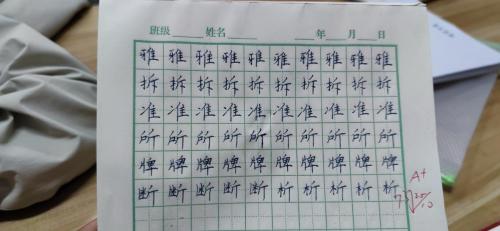 班级 姓名 年 月 日
雅 雅 雅 雅 雅 雅 雅 雅 雅 雅
拆 拆 拆 拆 拆 拆 拆 拆 拆 拆
准 准 准 准 准 准 准 准 准 准
所 所 所 所 所 所 所 所 所 所
牌 牌 牌 牌 牌 牌 牌 牌 牌 牌
断 断 断 断 断 析 析 析 析 析
A+